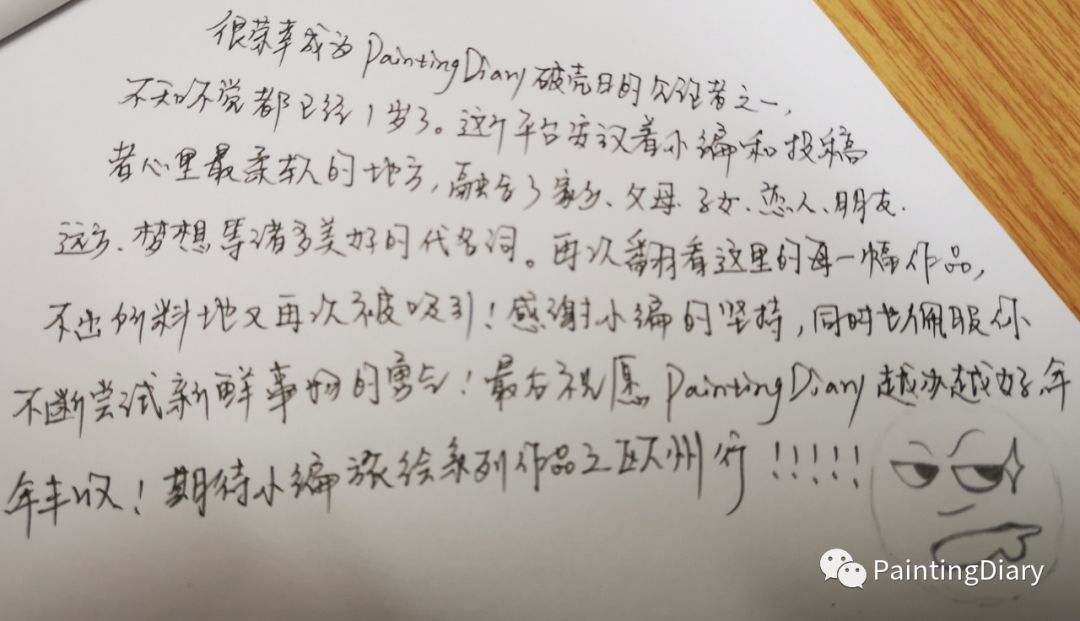 很荣幸成为PaintingDiary破壳日的见证者之一,
不知不觉都已经1岁了。这个平台安放着小编和投稿
者心里最柔软的地方,融合了家乡、父母、子女、恋人、朋友、
远方、梦想等诸多美好的代名词。再次翻看这里的每一幅作品,
不出所料地又再次被吸引!感谢小编的坚持,同时也佩服你
不断尝试新鲜事物的勇气!最后祝愿PaintingDiary越办越好年
年丰收!期待小编旅绘系列作品之欧州行!!!!!
PaintingDiary